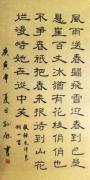 風雨送春歸飛雪迎春到已是
懸崖百丈冰猶有花枝俏俏也
不爭春衹把春來報待到山花
爛漫時她在叢中笑
庚寅年夏月
書